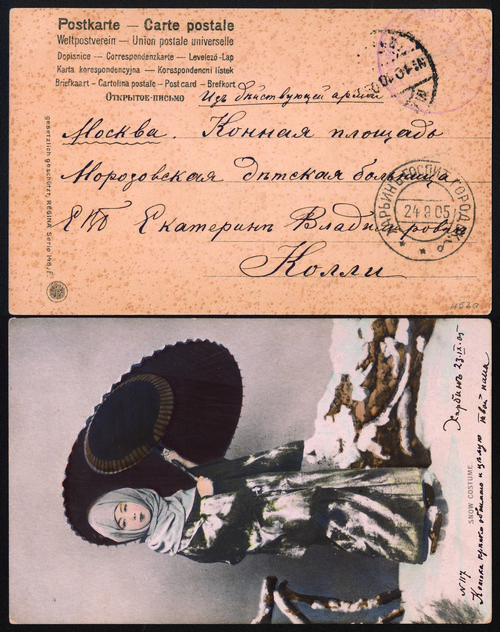 Postkarte — Carte postale
Weltpostverein — Union postale universelle
Dopisnice — Correspondenzkarte — Levelező-Lap
Karta korespondencyjna — Korespondenční lístek
Briefkaart — Cartolina postale — Post card — Brefkort
Открытое-письмо
Изъ дѣйствующей арміи
Москва. Конная площадь
Морозовская дѣтская больница
Екатеринѣ Владиміровнѣ
Колли
gesetzlich geschützt, REGINA Serie
24 9 05
SNOW COSTUME
Харбинъ 23.IX.05
N 117
крѣпко обнимаю и цѣлую твой папа